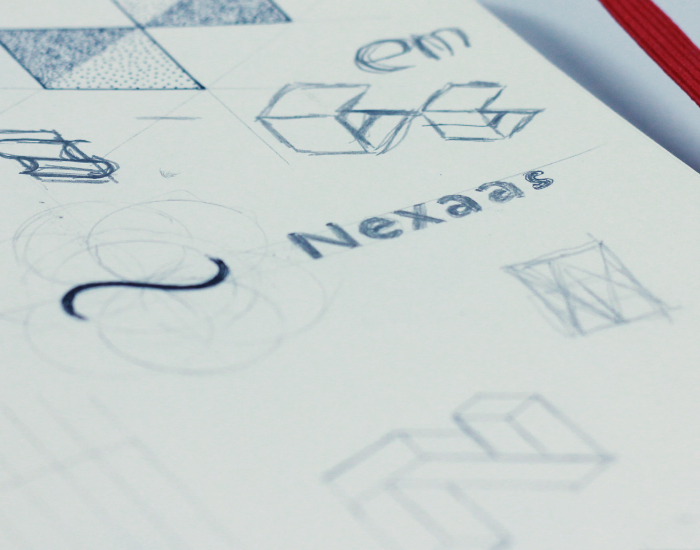 em
Nexaas